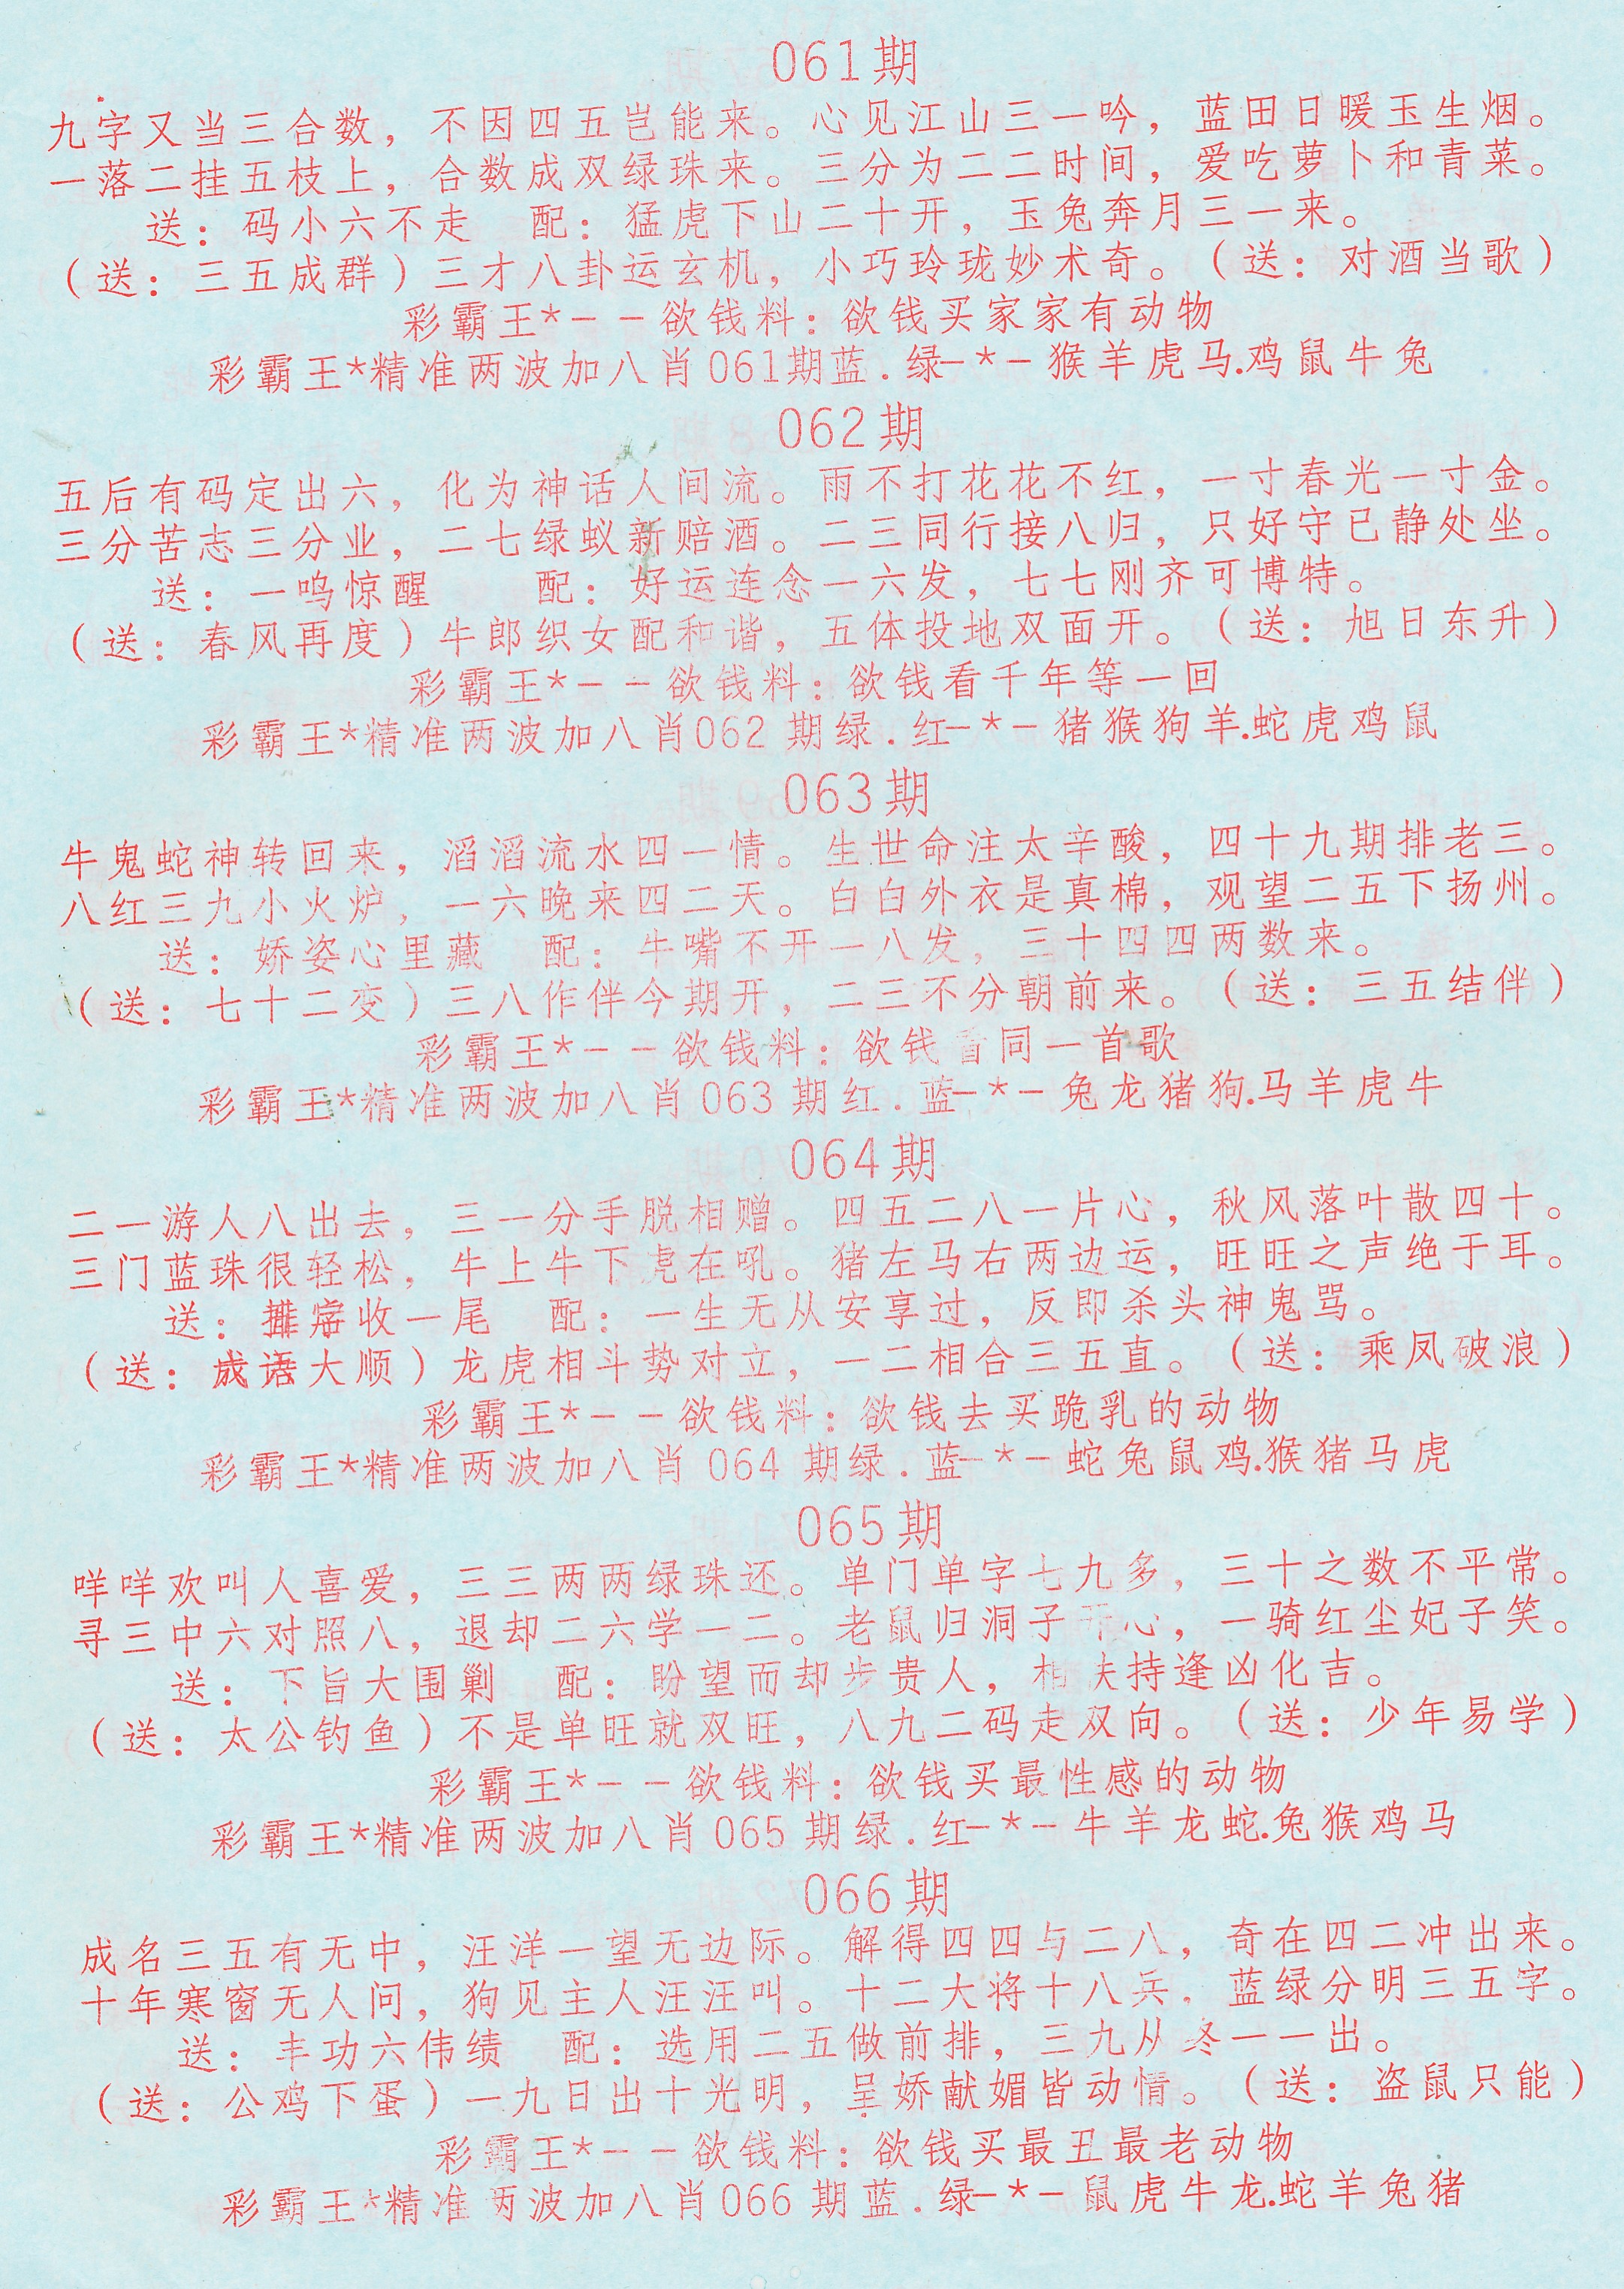 061期
九字又当三合数，不因四五岂能来。心见江山三一吟，蓝田日暖玉生烟。
一落二挂五枝上，合数成双绿珠来。三分为二二时间，爱吃萝卜和青菜。
送：码小六不走 配：猛虎下山二十开，玉兔奔月三一来。
（送：三五成群）三才八卦运玄机，小巧玲珑妙术奇。（送：对酒当歌）
彩霸王*－－欲钱料：欲钱买家家有动物
彩霸王*精准两波加八肖061期蓝.绿－*－猴羊虎马.鸡鼠牛兔
062期
五后有码定出六，化为神话人间流。雨不打花花不红，一寸春光一寸金。
三分苦志三分业，二七绿蚁新赔酒。二三同行接八归，只好守已静处坐。
送：一呜惊醒 配：好运连念一六发，七七刚齐可博特。
（送：春风再度）牛郎织女配和谐，五体投地双面开。（送：旭日东升）
彩霸王*－－欲钱料：欲钱看千年等一回
彩霸王*精准两波加八肖062期绿.红－*－猪猴狗羊.蛇虎鸡鼠
063期
牛鬼蛇神转回来，滔滔流水四一情。生世命注太辛酸，四十九期排老三。
八红三九小火炉，一六晚来四二天。白白外衣是真棉，观望二五下扬州。
送：娇姿心里藏 配：牛嘴不开一八发，三十四四两数来。
（送：七十二变）三八作伴今期开，二三不分朝前来。（送：三五结伴）
彩霸王*－－欲钱料：欲钱看同一首歌
彩霸王*精准两波加八肖063期红.蓝－*－兔龙猪狗.马羊虎牛
064期
二一游人八出去，三一分手脱相赠。四五二八一片心，秋风落叶散四十。
三门蓝珠很轻松，牛上牛下虎在吼。猪左马右两边运，旺旺之声绝于耳。
送：收一尾 配：一生无从安享过，反即杀头神鬼骂。
（送：大顺）龙虎相斗势对立，一二相合三五直。（送：乘凤破浪）
彩霸王*－－欲钱料：欲钱去买跪乳的动物
彩霸王*精准两波加八肖064期绿.蓝－*－蛇兔鼠鸡.猴猪马虎
065期
咩咩欢叫人喜爱，三三两两绿珠还。单门单字七九多，三十之数不平常。
寻三中六对照八，退却二六学一二。老鼠归洞子开心，一骑红尘妃子笑。
送：下旨大围剿 配：盼望而却步贵人，相扶持逢凶化吉。
（送：太公钓鱼）不是单旺就双旺，八九二码走双向。（送：少年易学）
彩霸王*－－欲钱料：欲钱买最性感的动物
彩霸王*精准两波加八肖065期绿.红－*－牛羊龙蛇.兔猴鸡马
066期
成名三五有无中，汪洋一望无边际。解得四四与二八，奇在四二冲出来。
十年寒窗无人问，狗见主人汪汪叫。十二大将十八兵，蓝绿分明三五字。
送：丰功六伟绩 配：选用二五做前排，三九从冬一一出。
（送：公鸡下蛋）一九日出十光明，呈娇献媚皆动情。（送：盗鼠只能）
彩霸王*－－欲钱料：欲钱买最丑最老动物
彩霸王*精准两波加八肖066期蓝.绿－*－鼠虎牛龙.蛇羊兔猪